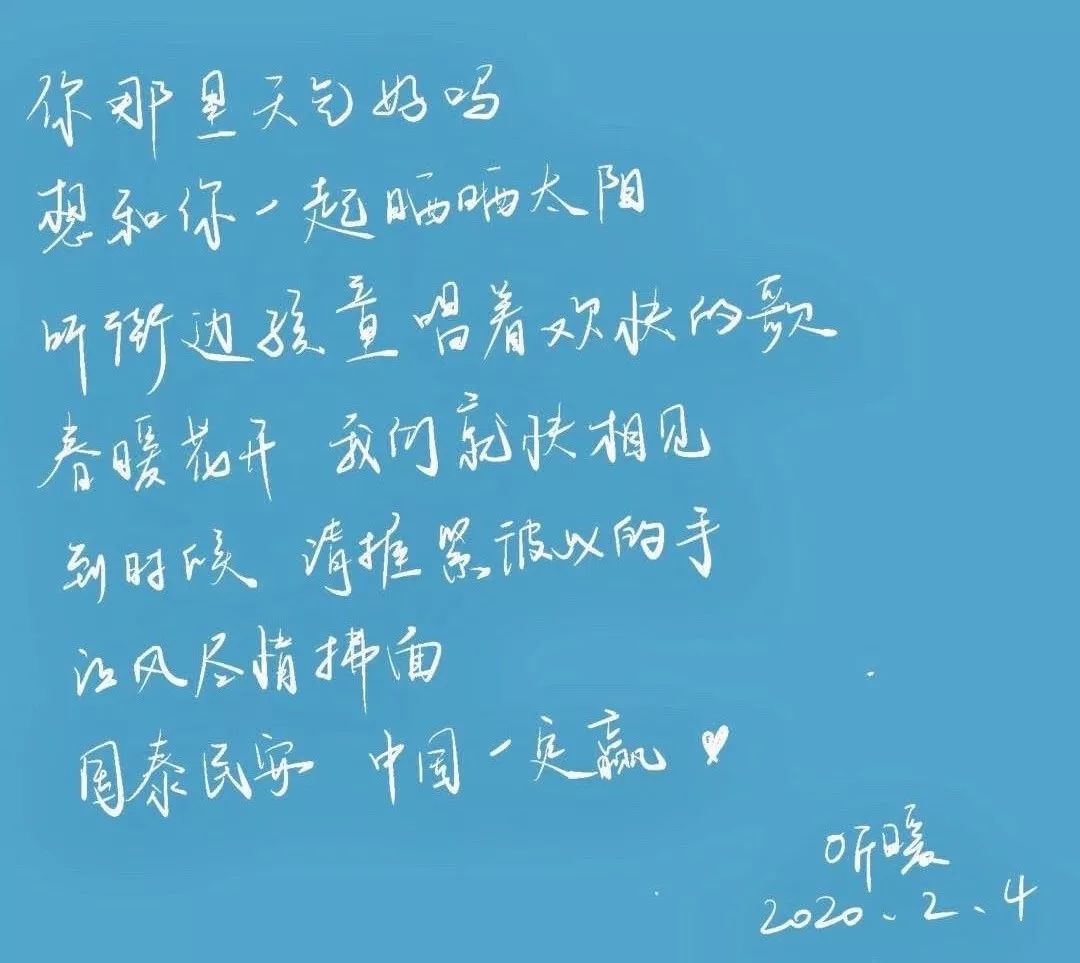 你那里天气好吗
想和你一起晒晒太阳
听街边孩童唱着欢快的歌
春暖花开 我们就快相见
到时候 请握紧彼此的手
江风尽情拂面
国泰民安 中国一定赢
听暖
2020.2.4